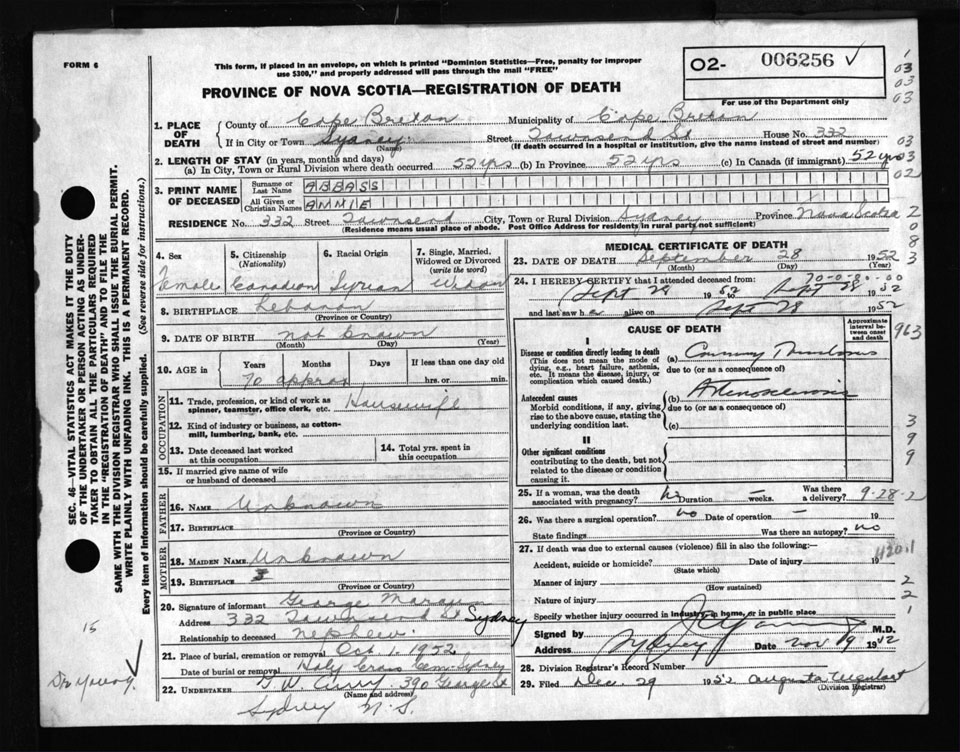 FORM 6
This form, if placed in an envelope, on which is printed "Dominion Statistics—Free, penalty for improper
use $300," and properly addressed will pass through the mail "FREE"
O2- 006256 ✓
For use of the Department only
PROVINCE OF NOVA SCOTIA—REGISTRATION OF DEATH
1. PLACE OF DEATH
County of Cape Breton Municipality of Cape Breton
If in City or Town Sydney Street Townsend St House No. 332
(Name) (If death occurred in a hospital or institution, give the name instead of street and number)
2. LENGTH OF STAY (in years, months and days)
(a) In City, Town or Rural Division where death occurred 52 yrs (b) In Province 52 yrs (c) In Canada (if immigrant) 52 yrs
3. PRINT NAME OF DECEASED
Surname or Last Name ABBASS
All Given or Christian Names ANNIE
RESIDENCE No. 332 Street Townsend City, Town or Rural Division Sydney Province Nova Scotia
(Residence means usual place of abode. Post Office Address for residents in rural parts not sufficient)
4. Sex
Female
5. Citizenship
(Nationality)
Canadian
6. Racial Origin
Syrian
7. Single, Married,
Widowed or Divorced
(write the word)
Widow
8. BIRTHPLACE Lebanon
(Province or Country)
9. DATE OF BIRTH not known
(Month) (Day) (Year)
10. AGE in Years Months Days If less than one day old
70 approx hrs. or min.
OCCUPATION
11. Trade, profession, or kind of work as
spinner, teamster, office clerk, etc. Housewife
12. Kind of industry or business, as cotton-
mill, lumbering, bank, etc.
13. Date deceased last worked
at this occupation
14. Total yrs. spent in
this occupation
15. If married give name of wife
or husband of deceased
FATHER
16. NAME Unknown
17. BIRTHPLACE
(Province or Country)
MOTHER
18. MAIDEN NAME Unknown
19. BIRTHPLACE
(Province or Country)
20. Signature of informant George
Address 332 Townsend St Sydney
Relationship to deceased nephew.
21. Place of burial, cremation or removal Oct 1, 1952
Date of burial or removal Holy Cross Cem. Sydney
22. UNDERTAKER T.W. Curry 390 George St
(Name and address)
Sydney N.S.
MEDICAL CERTIFICATE OF DEATH
23. DATE OF DEATH September 28 1952
(Month) (Day) (Year)
24. I HEREBY CERTIFY that I attended deceased from: 70-0-0-00-00
Sept 28 1952 to Sept 28 1952
and last saw her alive on Sept 28 1952
CAUSE OF DEATH
Approximate
interval be-
tween onset
and death
I
Disease or condition directly leading to death
(This does not mean the mode of
dying, e.g., heart failure, asthenia,
etc. It means the disease, injury, or
complication which caused death.)
(a) Coronary Thrombosis
due to (or as a consequence of)
Antecedent causes
Morbid conditions, if any, giving
rise to the above cause, stating the
underlying condition last.
(b) Arteriosclerosis
due to (or as a consequence of)
(c)
II
Other significant conditions
contributing to the death, but not
related to the disease or condition
causing it.
25. If a woman, was the death
associated with pregnancy? no Duration — weeks. Was there
a delivery? 9-28-2
26. Was there a surgical operation? no Date of operation — 19
State findings Was there an autopsy? no
27. If death was due to external causes (violence) fill in also the following:—
Accident, suicide or homicide? Date of injury 19
(State which)
420.1
Manner of injury
(How sustained)
Nature of injury
Specify whether injury occurred in industry, in home, or in public place
Signed by M.D.
Address Sydney Date Nov 19 1952
28. Division Registrar's Record Number
29. Filed Dec. 29 1952 Augusta Urquhart
(Division Registrar)
SEC. 46—VITAL STATISTICS ACT MAKES IT THE DUTY
OF THE UNDERTAKER OR PERSON ACTING AS UNDER-
TAKER TO OBTAIN ALL THE PARTICULARS REQUIRED
IN THE "REGISTRATION OF DEATH" AND TO FILE THE
SAME WITH THE DIVISION REGISTRAR WHO SHALL ISSUE THE BURIAL PERMIT.
WRITE PLAINLY WITH UNFADING INK. THIS IS A PERMANENT RECORD.
Every item of information should be carefully supplied. (See reverse side for instructions.)
15
Dr Young. ✓
1
03
03
03
03
03
02
2
0
8
3
963
3
9
9
2
2
1